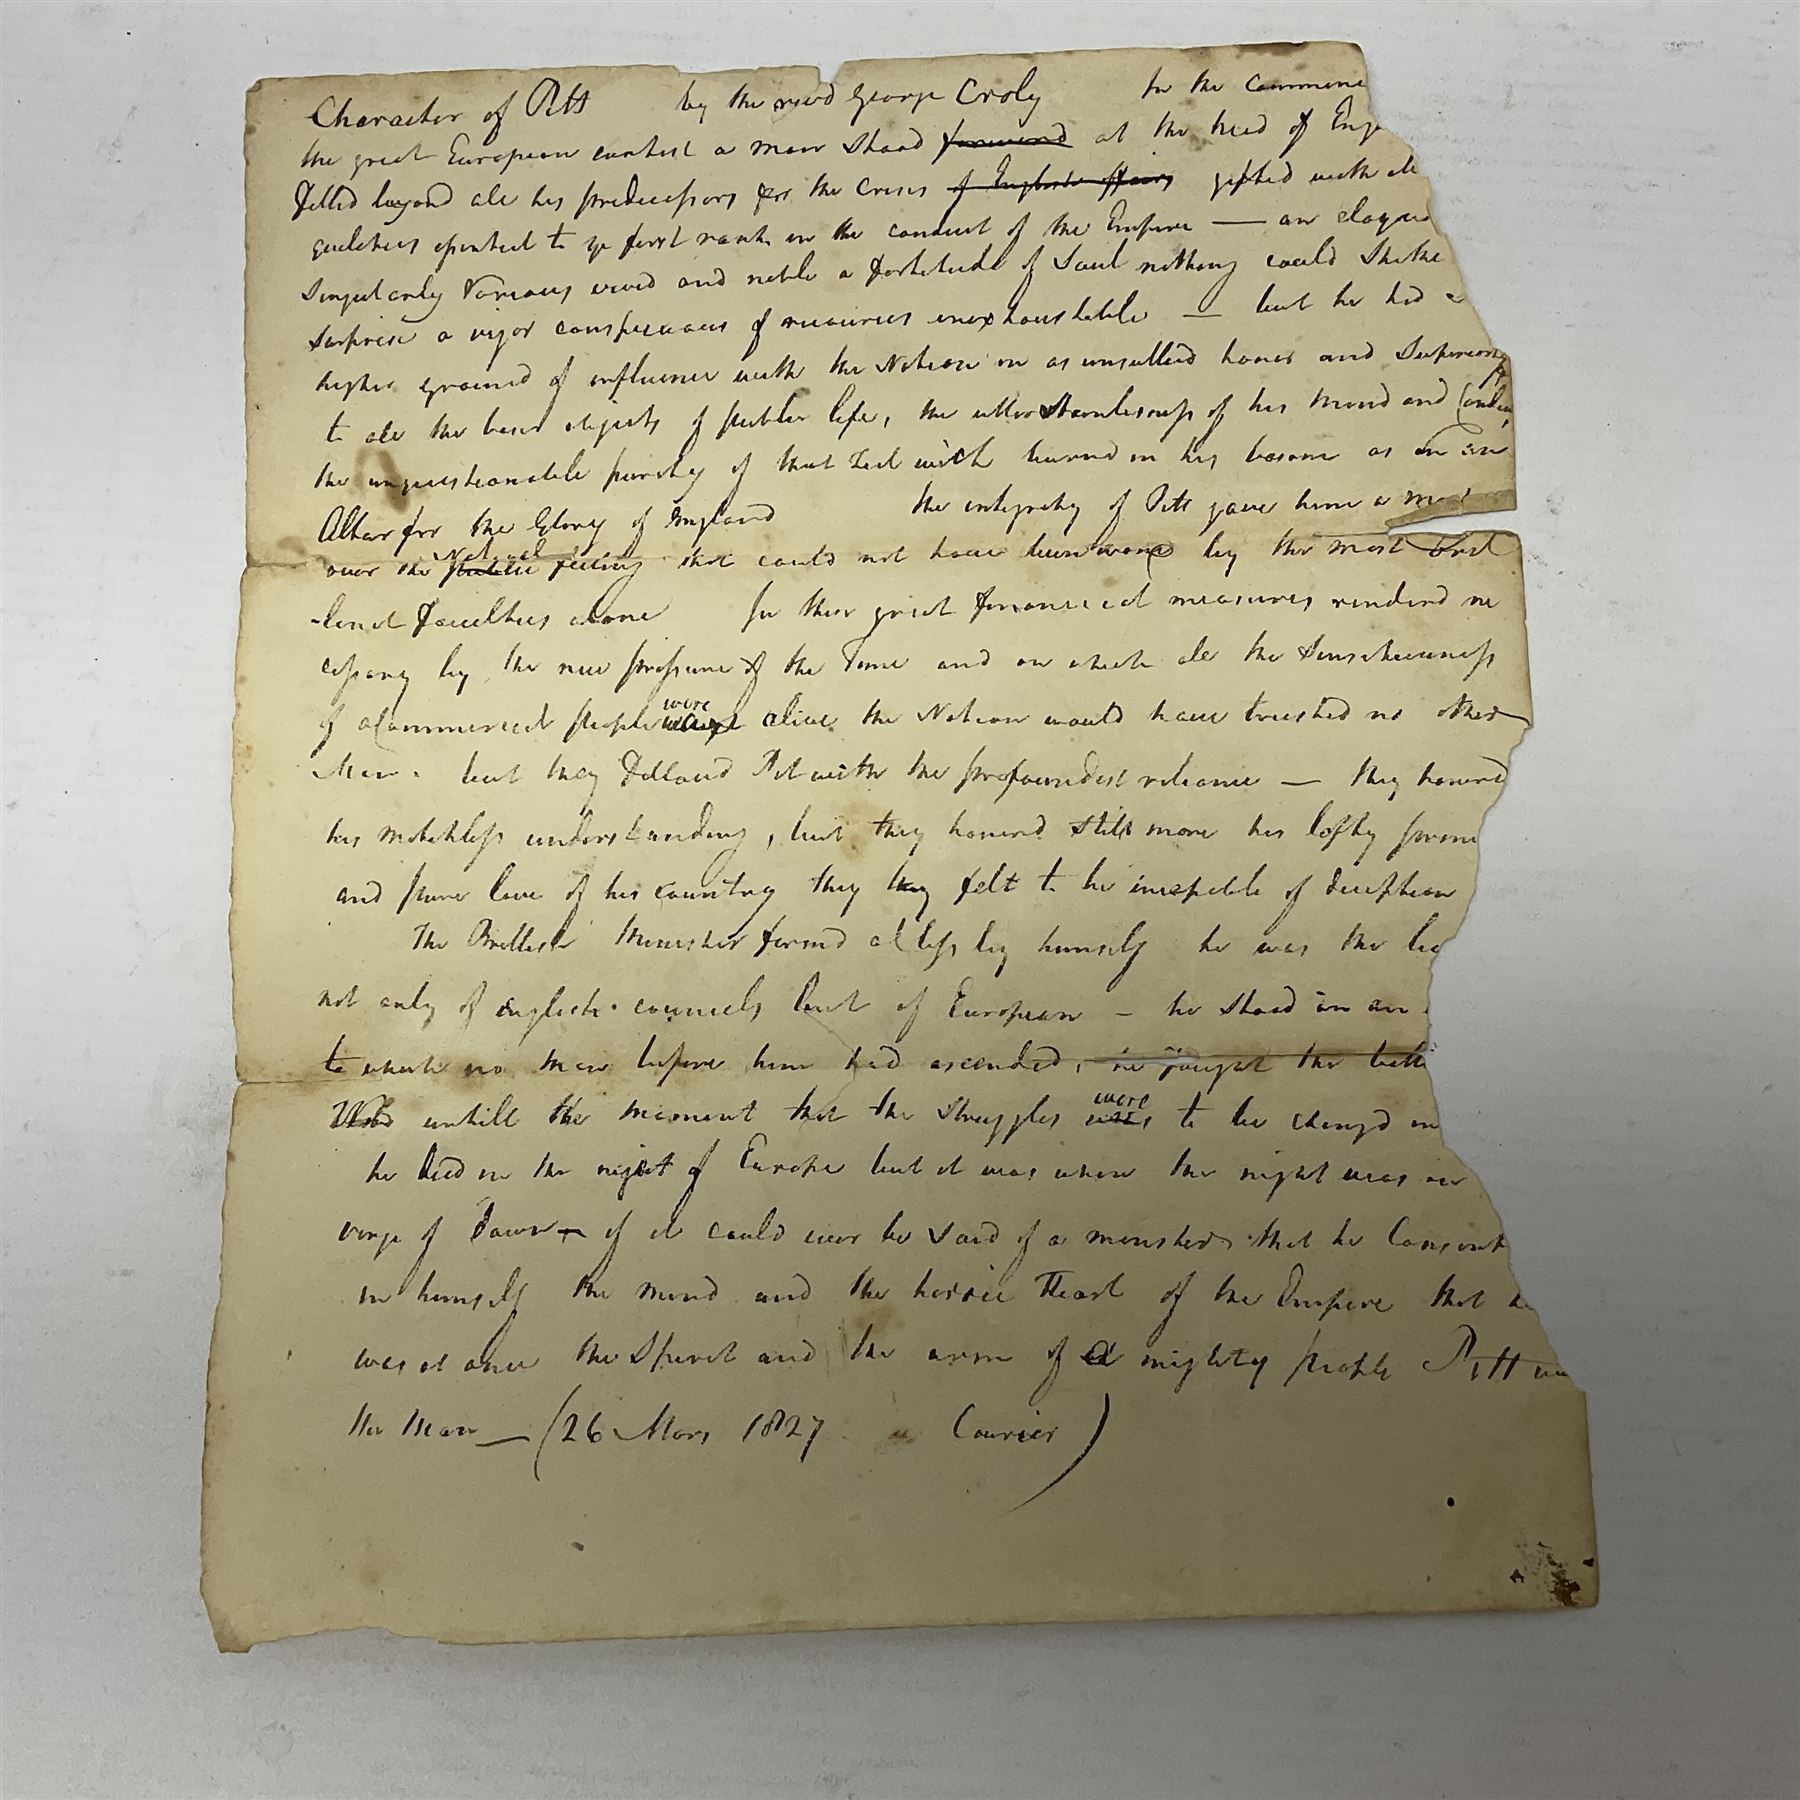 Character of Pitt by the revd George Croly In the commence
the great European contest a man stood forward at the head of Eng
fitted beyond all his predecessors for the crisis of English affairs gifted with all
qualities essential to ye first rank in the conduct of the Empire — an eloque
singularly various vivid and noble a fortitude of Soul nothing could shake
surprise a vigor conspicuous of resources inexhaustible — but he had
higher ground of influence with the Nation in an unsullied honor and superiority
to all the baser objects of public life, the utter stainlessness of his mind and
the unquestionable purity of that Zeal wich burnd in his bosom as on an
Altar for the Glory of England the integrity of Pitt gave him a
over the public National feeling that could not have been wone by the most
-lent faculties alone In those great financial measures renderd ne
cessary by the new pressure of the time and on which all the sensitiveness
of a Commercial people were alive the Nation would have trusted no other
Man. but they followd Pit with the profoundest reliance — they honord
his matchless understanding, but they honord still more his lofty
and pure love of his country they they felt to be incapable of deception
The British Minister formd a class by himself he was the
not only of english counsels but of European — he stood in an
to which no man before him had ascended, he fought the
untill the moment that the struggles were to be changd in
he died in the night of Europe but it was when the night was
verge of Dawn — if it could ever be said of a minister that he
in himself the mind and the heroic Heart of the Empire that he
was at once the Spirit and the arm of a mighty people Pitt
the Man — (26 Mars 1827 Courier)